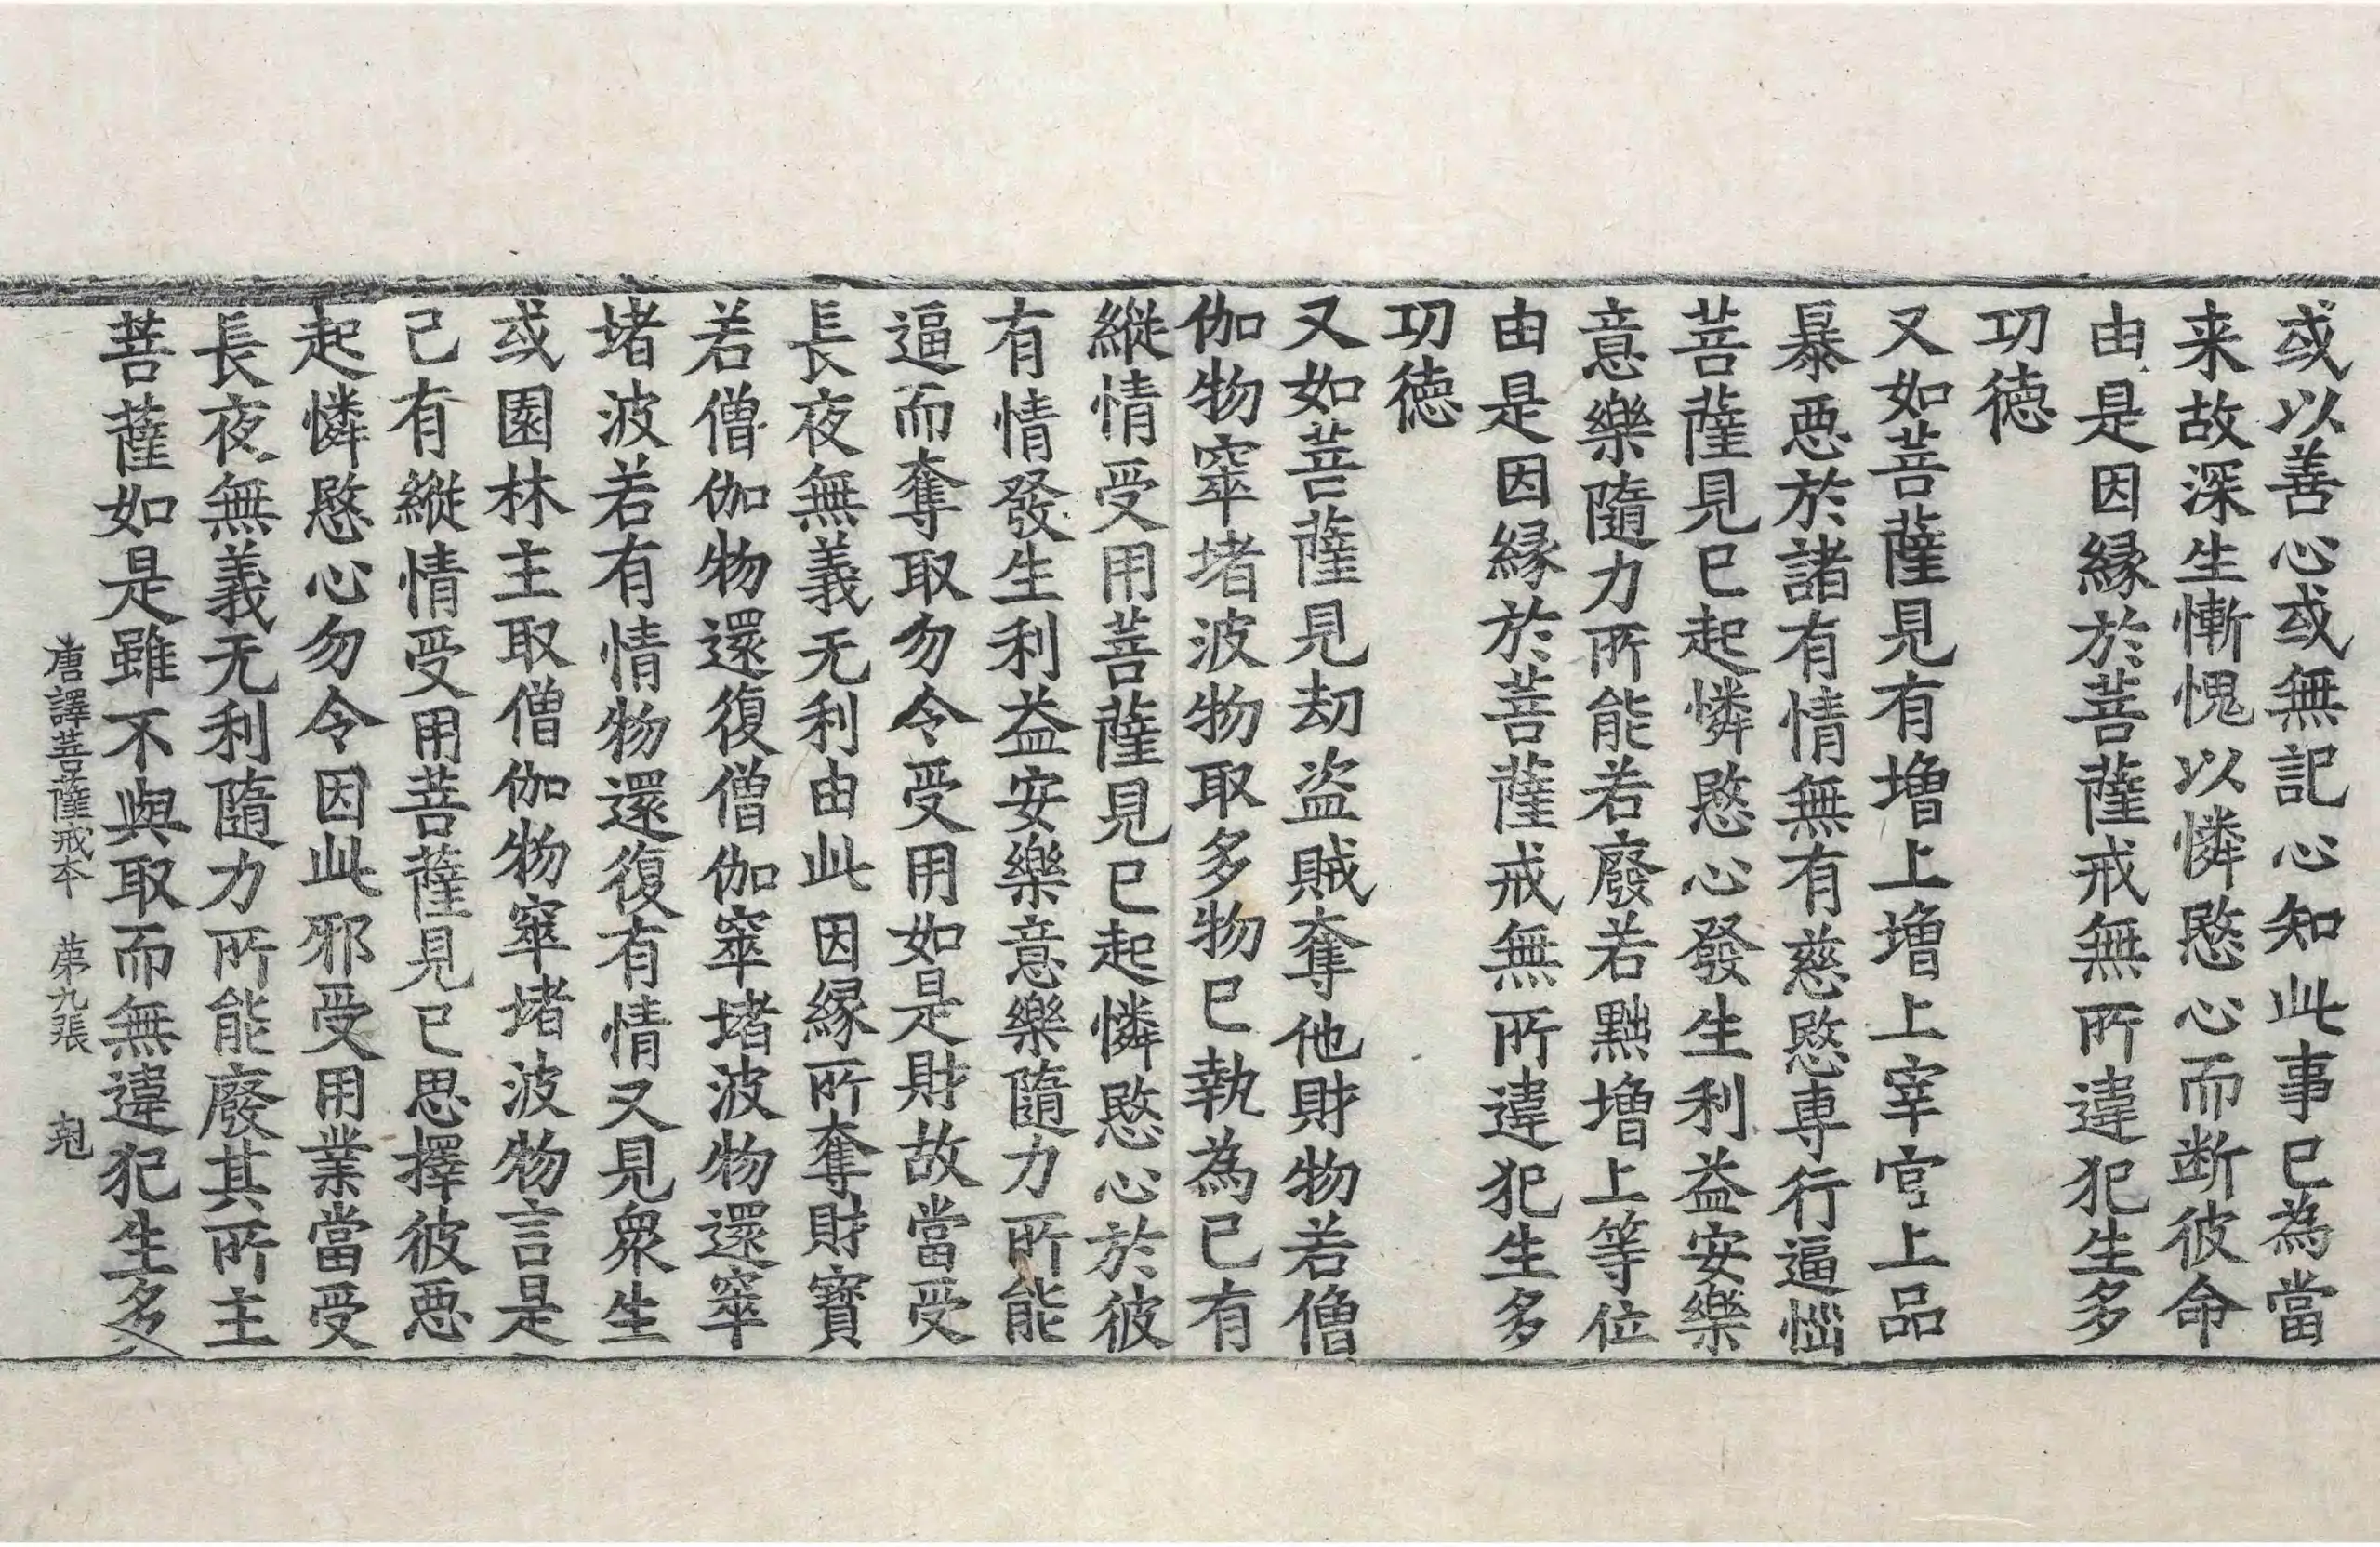 或以善心或無記心知此事已為當
来故深生慚愧以憐愍心而断彼命
由是因縁於菩薩戒無所違犯生多
功徳
又如菩薩見有増上増上宰官上品
暴悪於諸有情無有慈愍専行逼惱
菩薩見已起憐愍心發生利益安樂
意樂隨力所能若廢若黜増上等位
由是因縁於菩薩戒無所違犯生多
功徳
又如菩薩見劫盗賊奪他財物若僧
伽物窣堵波物取多物已執為已有
縦情受用菩薩見已起憐愍心於彼
有情發生利益安樂意樂隨力所能
逼而奪取勿令受用如是財故當受
長夜無義无利由此因縁所奪財寶
若僧伽物還復僧伽窣堵波物還窣
堵波若有情物還復有情又見衆生
或園林主取僧伽物窣堵波物言是
已有縦情受用菩薩見已思擇彼悪
起憐愍心勿令因此邪受用業當受
長夜無義无利隨力所能廢其所主
菩薩如是雖不與取而無違犯生多
唐譯菩薩戒本 苐九張 剋